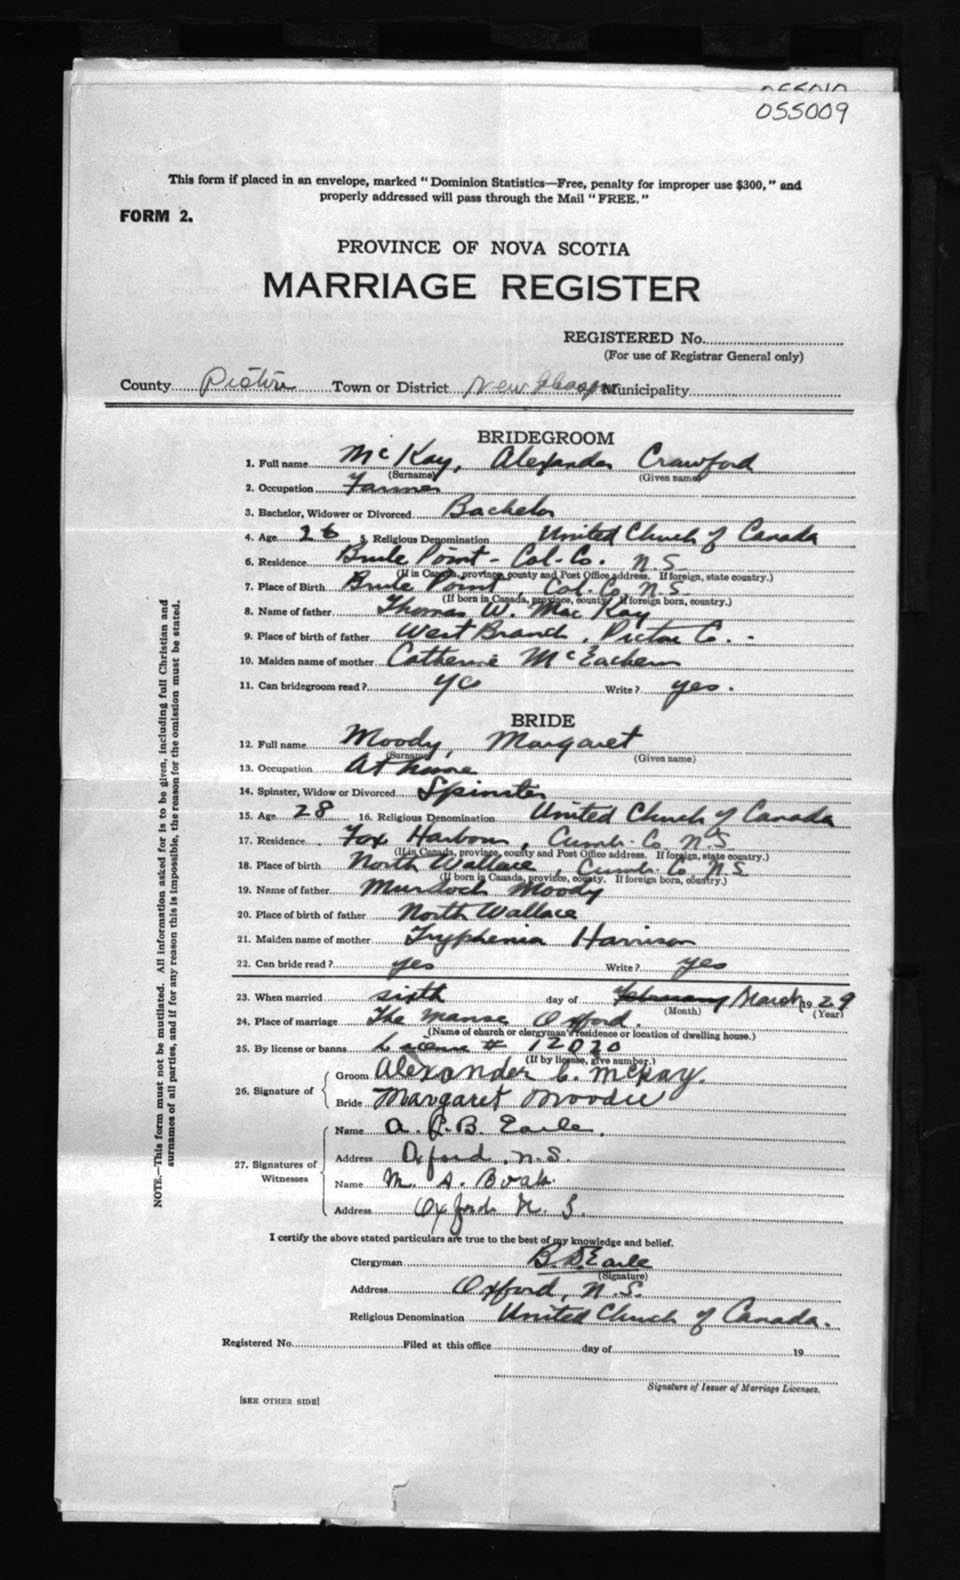 055009
This form if placed in an envelope, marked "Dominion Statistics—Free, penalty for improper use $300," and
properly addressed will pass through the Mail "FREE."
FORM 2.
PROVINCE OF NOVA SCOTIA
MARRIAGE REGISTER
REGISTERED No.
(For use of Registrar General only)
County Pictou Town or District New Glasgow Municipality
BRIDEGROOM
1. Full name McKay, Alexander Crawford
(Surname) (Given name)
2. Occupation Farmer
3. Bachelor, Widower or Divorced Bachelor
4. Age 26 5. Religious Denomination United Church of Canada
6. Residence Brule Point - Col. Co. N.S.
(If in Canada, province, county and Post Office address. If foreign, state country.)
7. Place of Birth Brule Point, Col. Co. N.S.
(If born in Canada, province, county. If foreign born, country.)
8. Name of father Thomas W. MacKay
9. Place of birth of father West Branch, Pictou Co.
10. Maiden name of mother Catherine McEachern
11. Can bridegroom read? yes Write? yes.
BRIDE
12. Full name Moody, Margaret
(Surname) (Given name)
13. Occupation At home
14. Spinster, Widow or Divorced Spinster
15. Age 28 16. Religious Denomination United Church of Canada
17. Residence Fox Harbour, Cumb. Co. N.S.
(If in Canada, province, county and Post Office address. If foreign, state country.)
18. Place of birth North Wallace, Cumb. Co. N.S
(If born in Canada, province, county. If foreign born, country.)
19. Name of father Murdoch Moody
20. Place of birth of father North Wallace
21. Maiden name of mother Tryphenia Harrison
22. Can bride read? yes Write? yes
23. When married sixth day of February March 1929
(Month) (Year)
24. Place of marriage The Manse Oxford.
(Name of church or clergyman's residence or location of dwelling house.)
25. By license or banns License # 12020
(If by license, give number.)
26. Signature of Groom Alexander C. McKay.
Bride Margaret Moodie
27. Signatures of Witnesses
Name A. L. B. Earle.
Address Oxford, N.S.
Name M. A.
Address Oxford N. S.
I certify the above stated particulars are true to the best of my knowledge and belief.
Clergyman B. D. Earle
(Signature)
Address Oxford, N.S.
Religious Denomination United Church of Canada.
Registered No. Filed at this office day of 19
Signature of Issuer of Marriage Licenses.
[SEE OTHER SIDE]
NOTE.—This form must not be mutilated. All information asked for is to be given, including full Christian and
surnames of all parties, and if for any reason this is impossible, the reason for the omission must be stated.